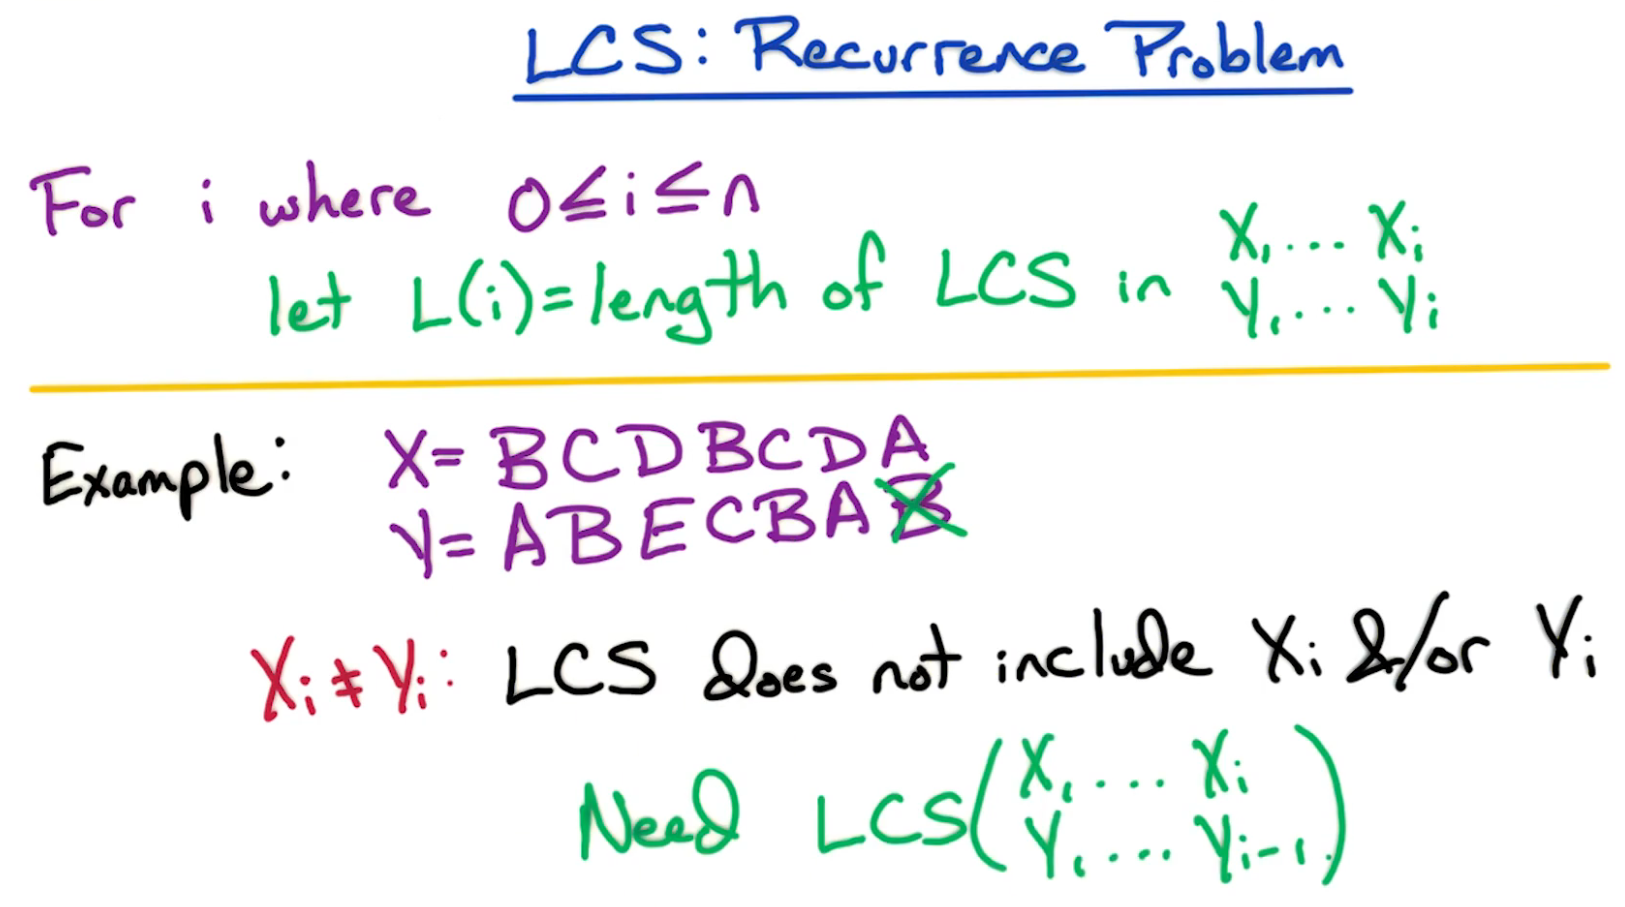 LCS: Recurrence Problem
For i where 0≤i≤n
let L(i)=length of LCS in X₁.... Xᵢ
Y₁.... Yᵢ
Example: X= BCDBCDA
Y= ABECBAB
Xᵢ≠Yᵢ: LCS does not include Xᵢ &/or Yᵢ
Need LCS(X₁.... Xᵢ
Y₁.... Yᵢ₋₁.)